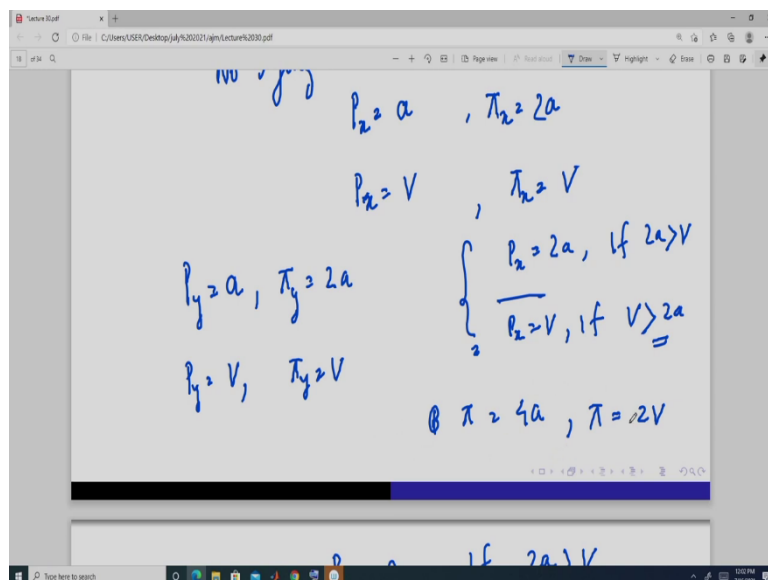 *Lecture 30.pdf
File | C:/Users/USER/Desktop/july%202021/ajm/Lecture%2030.pdf
18 of 34 Page view Read aloud Draw Highlight Erase
No
Px = a , πx = 2a
Px = V , πx = V
Py = a , πy = 2a
Px = 2a, if 2a>V
Px = V, if V>2a
Py = V, πy = V
π = 4a , π = 2V
if 2a>V
Type here to search
12:02 PM